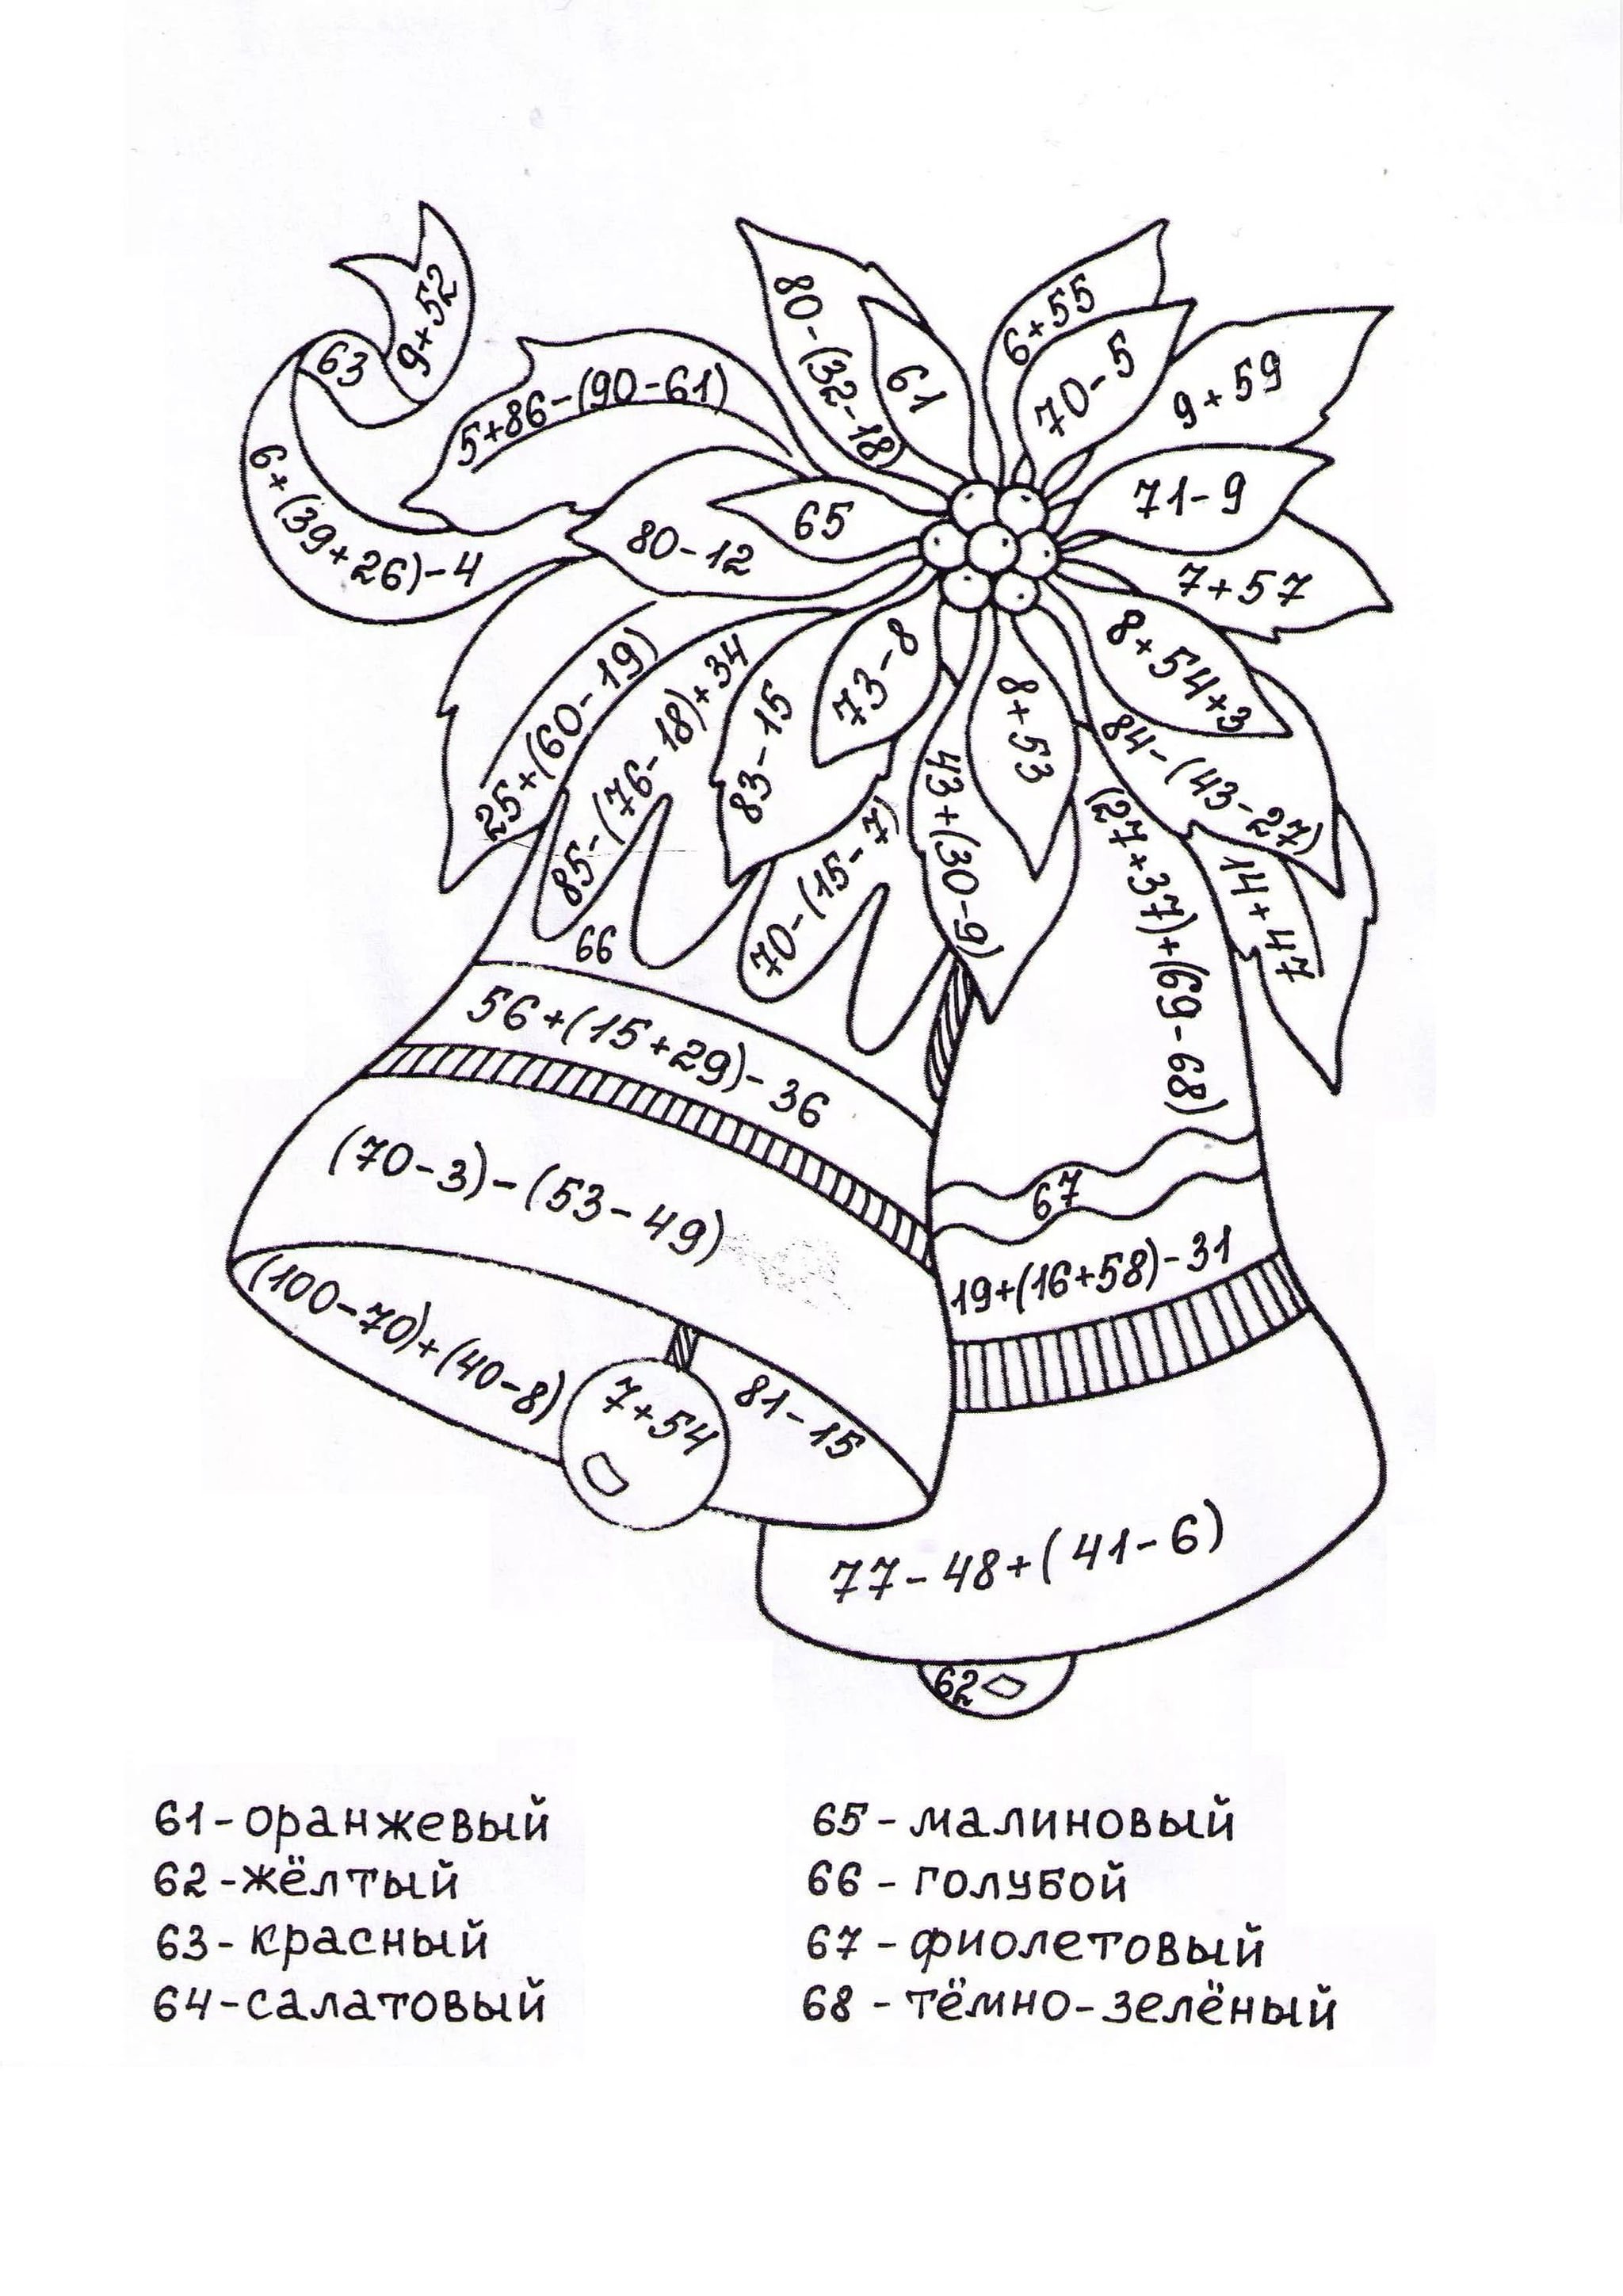 9+52
63
6+(39+26)-4
5+86-(90-61)
80-(32-18)
61
6+55
70-5
9+59
71-9
7+57
65
80-12
8+54+3
84-(43-27)
14+47
73-8
8+53
43+(30-9)
83-15
25+(60-19)
85-(76-18)+34
70-(15-7)
66
(27+37)+(69-68)
56+(15+29)-36
67
(70-3)-(53-49)
19+(16+58)-31
(100-70)+(40-8)
7+54
81-15
77-48+(41-6)
62
61-оранжевый
62-жёлтый
63-красный
64-салатовый
65-малиновый
66-голубой
67-фиолетовый
68-тёмно-зелёный